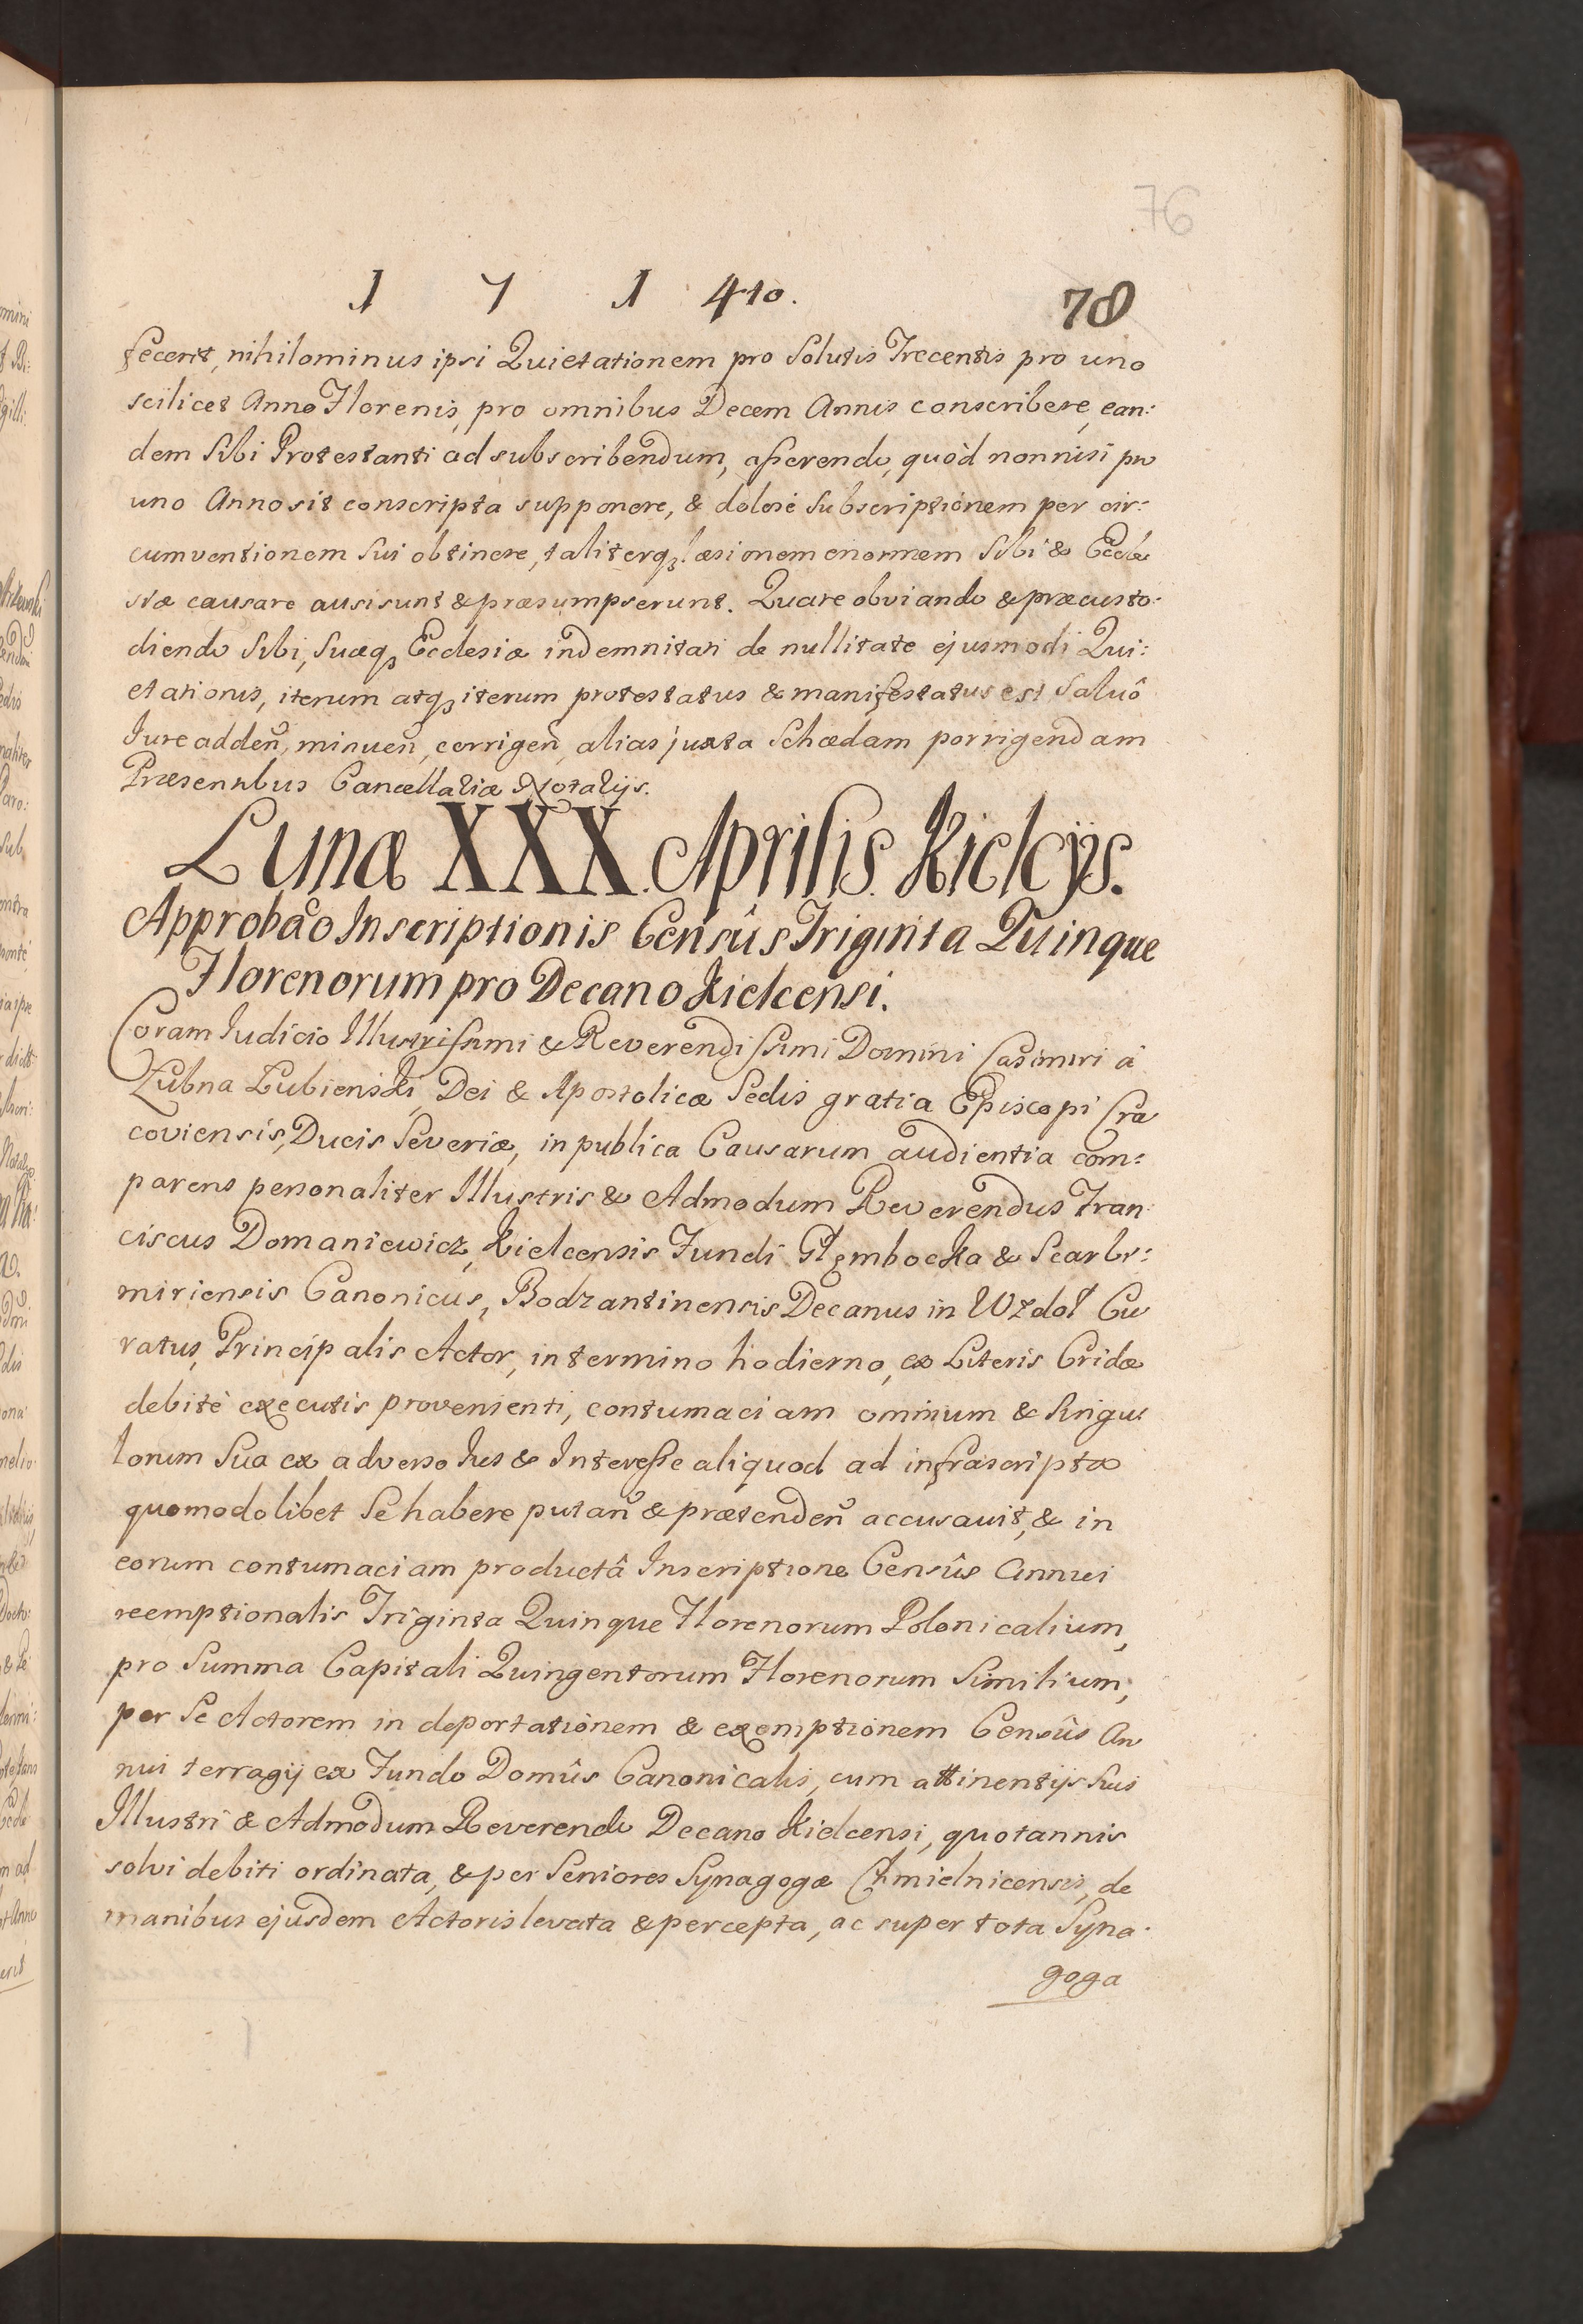 76
1 7 1 410. 78
fecerit, nihilominus ipsi Quietationem pro Solutis Trecentis pro uno
scilicet Anno Florenis, pro omnibus Decem Annis conscribere, ean:
dem Sibi Protestanti ad subscribendum, asserendo, quòd nonnisi pro
uno Anno sit conscripta supponere, & dolosè Subscriptionem per cir:
cumventionem Sui obtinere, taliterq3 læsionem enormem Sibi & Eccle
siæ causare ausi sunt & præsumpserunt. Quare obviando & præcusto:
diendo Sibi, Suæq3 Ecclesiæ indemnitati de nullitate ejusmodi Qui:
etationis, iterum atq3 iterum protestatus & manifestatus est Salvô
Iure addeñ, minueñ, corrigeñ, alias juxta Schædam porrigendam
Præsentibus Cancellariæ Notarijs.
Lunæ XXX. Aprilis. Kielcijs.
Approbaõ Inscriptionis Censûs Triginta Quinque
Florenorum pro Decano Kielcensi.
Coram Iudicio Illustrissimi & Reverendissimi Domini Casimiri à
Łubna Łubienski, Dei & Apostolicæ Sedis gratia Episcopi Cra
coviensis, Ducis Severiæ, in publica Causarum audientia com:
parens personaliter Illustris & Admodum Reverendus Fran:
ciscus Domaniewicz, Kielcensis Fundi Głembocka & Scarbi:
miriensis Canonicus, Bodzantinensis Decanus in Wzdoł Cu
ratus, Principalis Actor, in termino hodierno, ex Literis Cridæ
debitè executis provenienti, contumaciam omnium & Singu:
lorum Sua ex adverso Ius & Interesse aliquod ad infrascripta
quomodolibet Se habere putañ & prætendeñ accusavit, & in
eorum contumaciam productâ Inscriptione Censûs Annui
reemptionalis Triginta Quinque Florenorum Polonicalium,
pro Summa Capitali Quingentorum Florenorum Similium,
per Se Actorem in deportationem & exemptionem Censûs An
nui terragij ex Fundo Domûs Canonicalis, cum attinentijs suis
Illustri & Admodum Reverendo Decano Kielcensi, quotannis
solvi debiti ordinata, & per Seniores Synagogæ Chmielnicensis, de
manibus ejusdem Actoris levata & percepta, ac super tota Syna:
goga